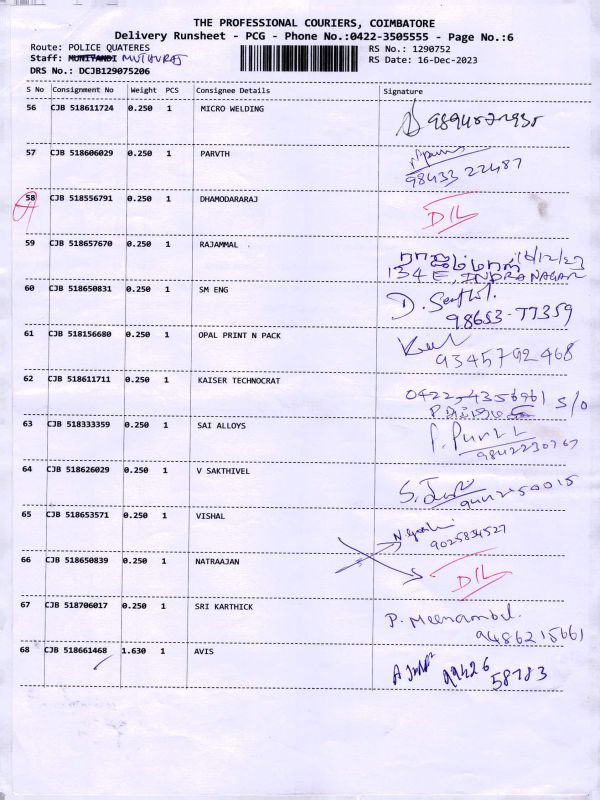 THE PROFESSIONAL COURIERS, COIMBATORE
Delivery Runsheet - PCG - Phone No.:0422-3505555 - Page No.:6
Route: POLICE QUATERES RS No.: 1290752
Staff: MUNIYANDI MUTHURAJ RS Date: 16-Dec-2023
DRS No.: DCJB129075206
S No Consignment No Weight PCS Consignee Details Signature
56 CJB 518611724 0.250 1 MICRO WELDING
57 CJB 518606029 0.250 1 PARVTH
98433 22487
58 CJB 518556791 0.250 1 DHAMODARARAJ D/L
59 CJB 518657670 0.250 1 RAJAMMAL ராஜம்மாள் 16/12/23
134 E, INDRA NAGAR
60 CJB 518650831 0.250 1 SM ENG D.
98653-77359
61 CJB 518156680 0.250 1 OPAL PRINT N PACK
9345792468
62 CJB 518611711 0.250 1 KAISER TECHNOCRAT 0422-4356961 S/O
63 CJB 518333359 0.250 1 SAI ALLOYS
64 CJB 518626029 0.250 1 V SAKTHIVEL
65 CJB 518653571 0.250 1 VISHAL
9025834527
66 CJB 518650839 0.250 1 NATRAAJAN D/L
67 CJB 518706017 0.250 1 SRI KARTHICK P. Meenambal.
9486215661
68 CJB 518661468 1.630 1 AVIS 99426
58783